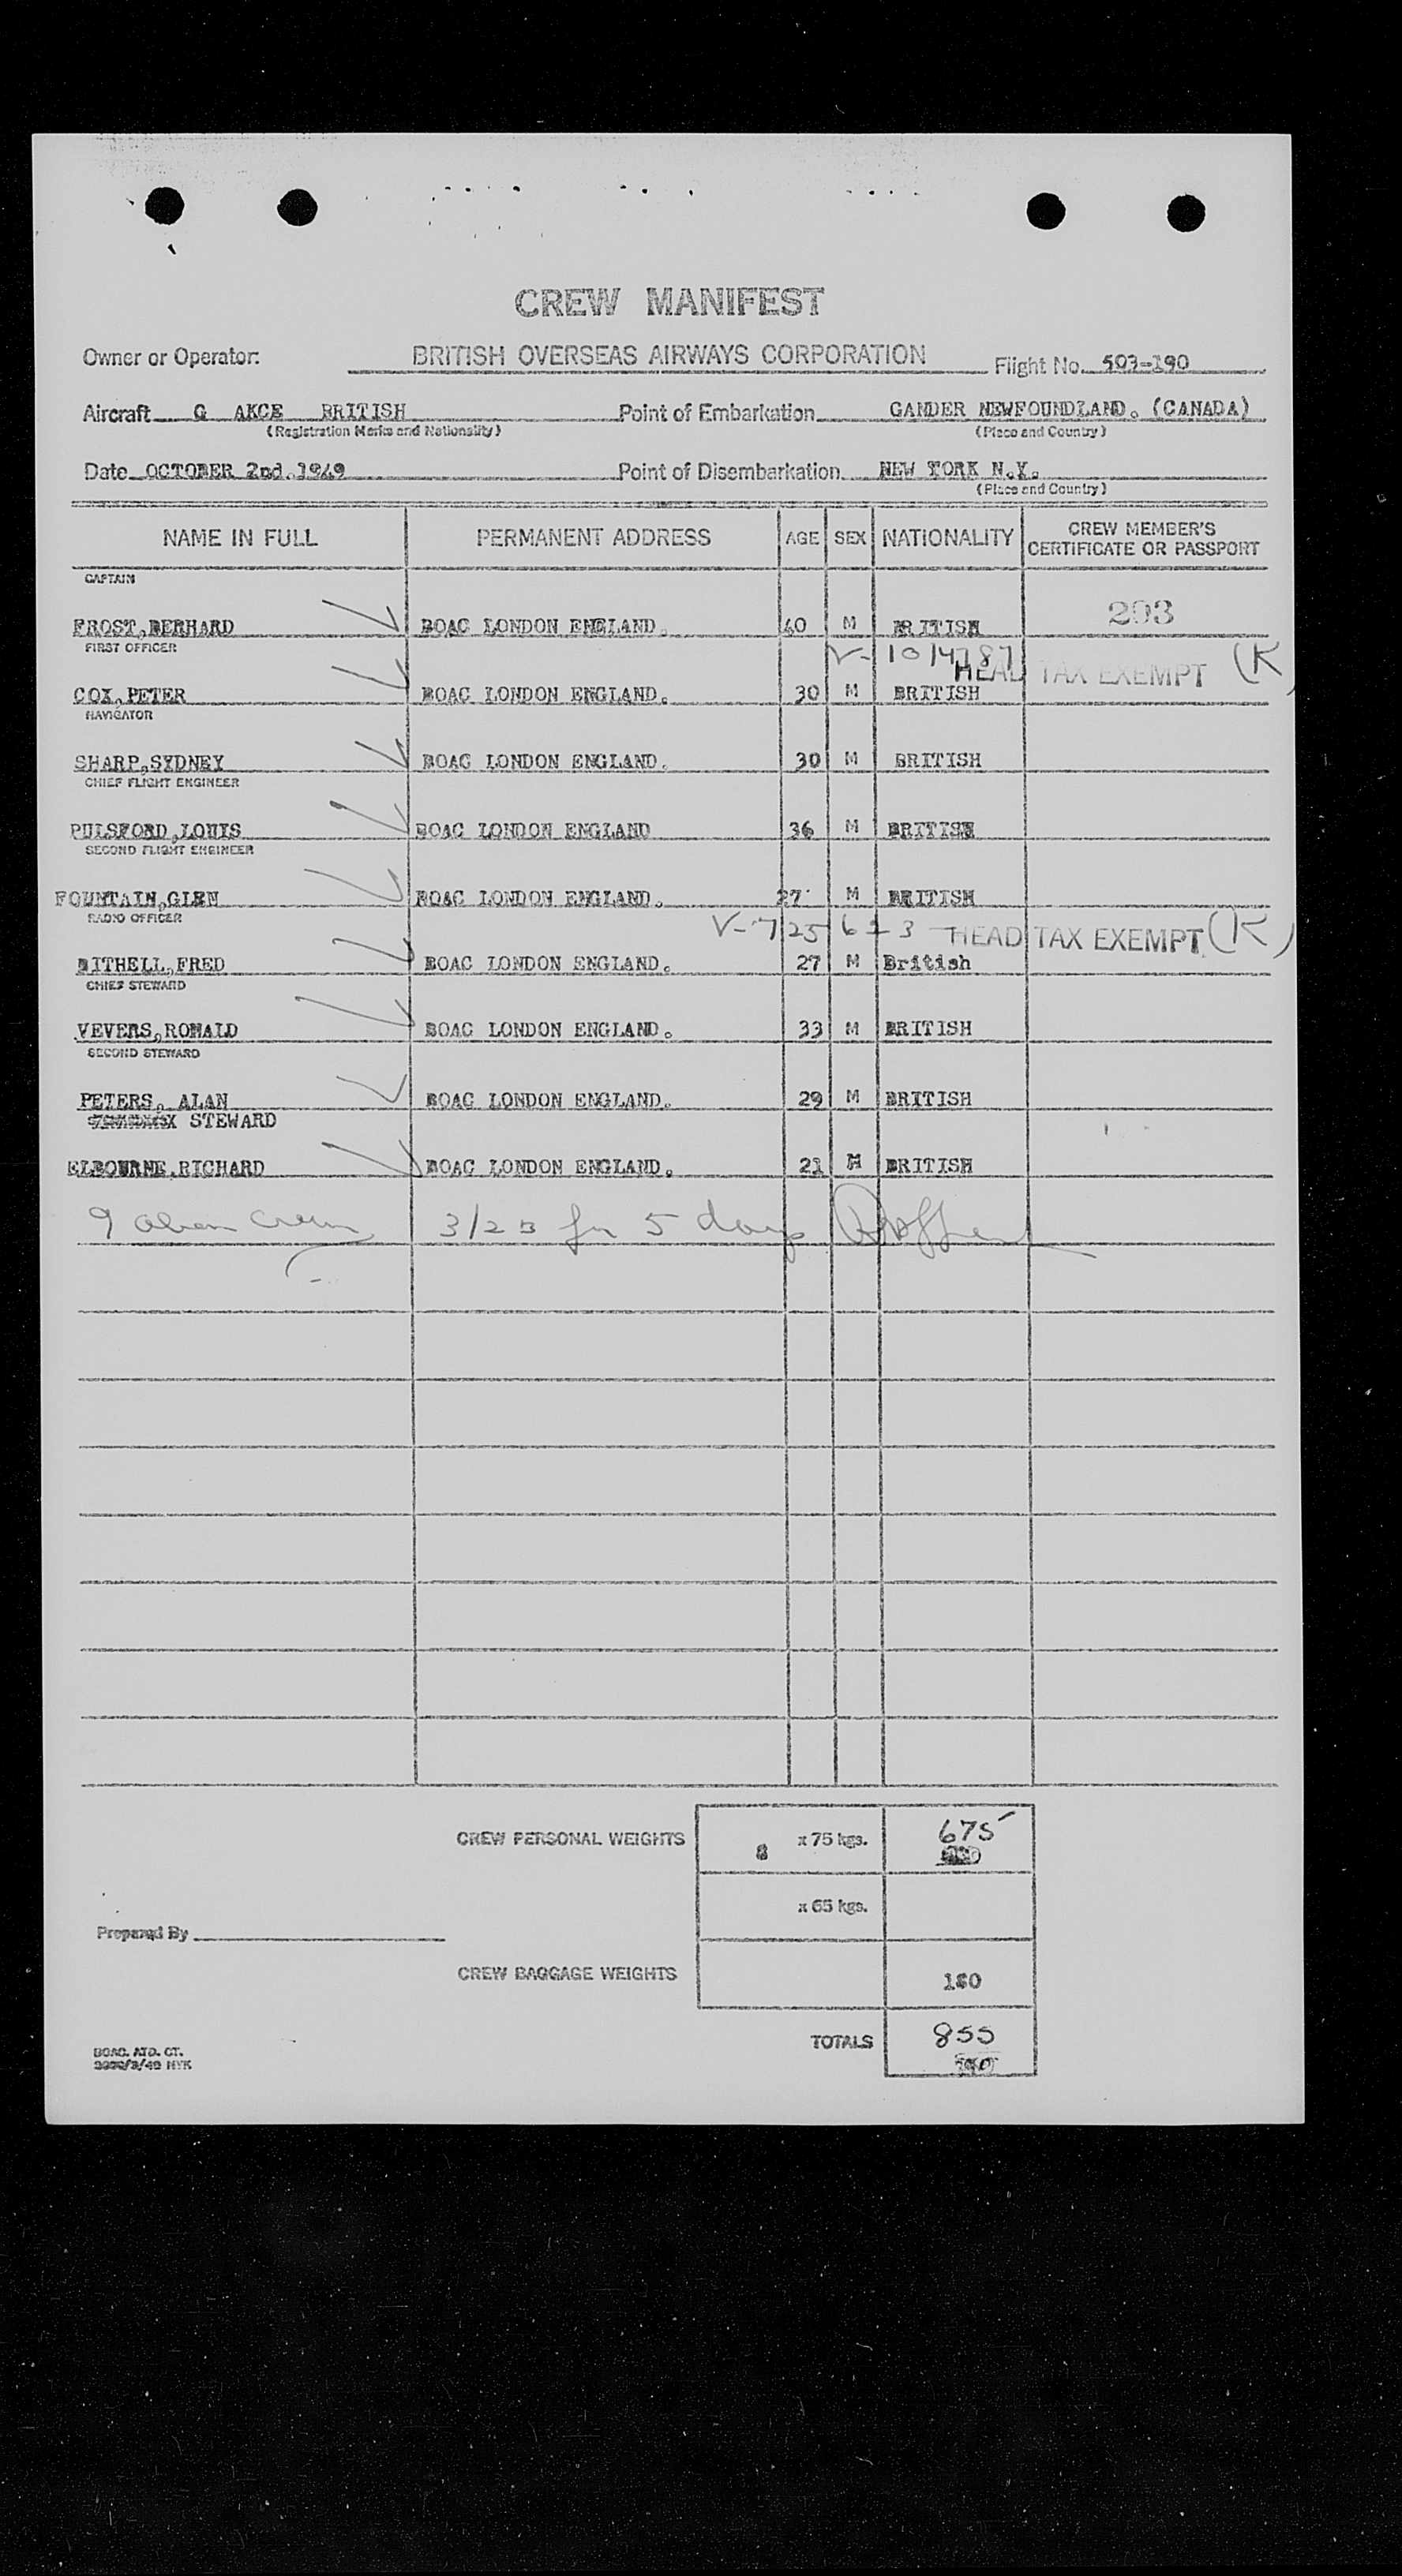 CREW MANIFEST
Owner or Operator: BRITISH OVERSEAS AIRWAYS CORPORATION Flight No. 503-190
Aircraft G AKCE BRITISH Point of Embarkation GANDER NEWFOUNDLAND. (CANADA)
(Registration Marks and Nationality) (Place and Country)
Date OCTOBER 2nd.1949 Point of Disembarkation NEW YORK N.Y.
(Place and Country)
NAME IN FULL PERMANENT ADDRESS AGE SEX NATIONALITY CREW MEMBER'S CERTIFICATE OR PASSPORT
CAPTAIN
203
FROST,BERHARD BOAC LONDON ENGLAND. 40 M BRITISH
FIRST OFFICER
V-1014787 HEAD TAX EXEMPT (K)
COX,PETER BOAC LONDON ENGLAND. 30 M BRITISH
NAVIGATOR
SHARP,SYDNEY BOAC LONDON ENGLAND. 30 M BRITISH
CHIEF FLIGHT ENGINEER
PULSFORD,LOUIS BOAC LONDON ENGLAND 36 M BRITISH
SECOND FLIGHT ENGINEER
FOUNTAIN,GLEN BOAC LONDON ENGLAND. 27 M BRITISH
RADIO OFFICER
V-725623 HEAD TAX EXEMPT (K)
BITHELL,FRED BOAC LONDON ENGLAND. 27 M British
CHIEF STEWARD
VEVERS,RONALD BOAC LONDON ENGLAND. 33 M BRITISH
SECOND STEWARD
PETERS, ALAN BOAC LONDON ENGLAND. 29 M BRITISH
STEWARD
ELBOURNE,RICHARD BOAC LONDON ENGLAND. 21 M BRITISH
9 alien crew 3/2 B for 5 days
CREW PERSONAL WEIGHTS 8 x 75 kgs. 675
x 65 kgs.
Prepared By
CREW BAGGAGE WEIGHTS 180
TOTALS 855
BOAC. ATD. CT.